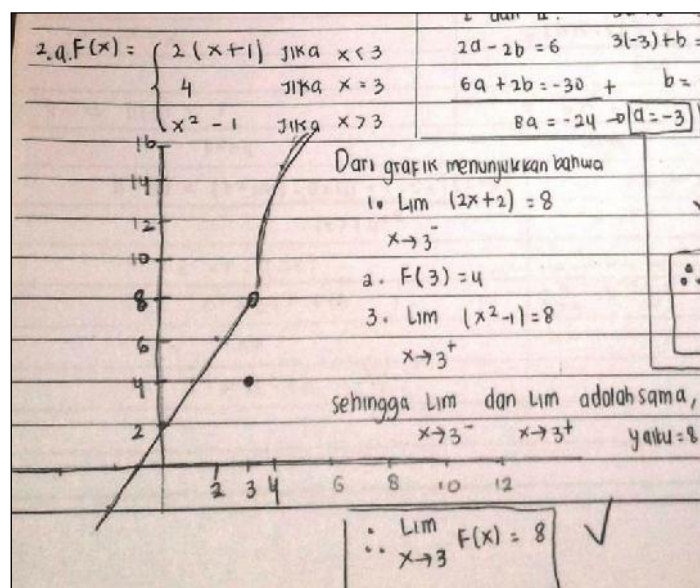 2.a. F(x) = { 2(x+1) jika x < 3
4 jika x = 3
x² - 1 jika x > 3
2a - 2b = 6
3(-3)+b =
6a + 2b = -30 +
b =
8a = -24 → a = -3
16
14
12
10
8
6
4
2
2 3 4 6 8 10 12
Dari grafik menunjukkan bahwa
1. Lim (2x+2) = 8
x→3⁻
2. F(3) = 4
3. Lim (x²-1) = 8
x→3⁺
sehingga Lim dan Lim adalah sama,
x→3⁻ x→3⁺ yaitu = 8
∴ Lim F(x) = 8 ✓
x→3
∴